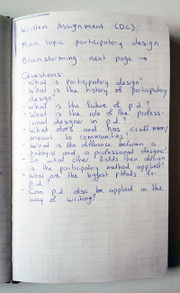 Written Assignment (DC)
Main topic: participatory design
Brainstorming next page →
Questions
- What is participatory design?
- What is the history of participatory
design?
- What is the future of p.d.?
- What is the role of the profess-
ional designer in p.d.?
- What does and has craft mean/
meant to communities?
- What is the difference between a
hobbyist and a professional designer?
- In what other fields than design
is the participatory method applied?
- What are the biggest pitfalls for
p.d.
- Can p.d. also be applied in the
way of writing?